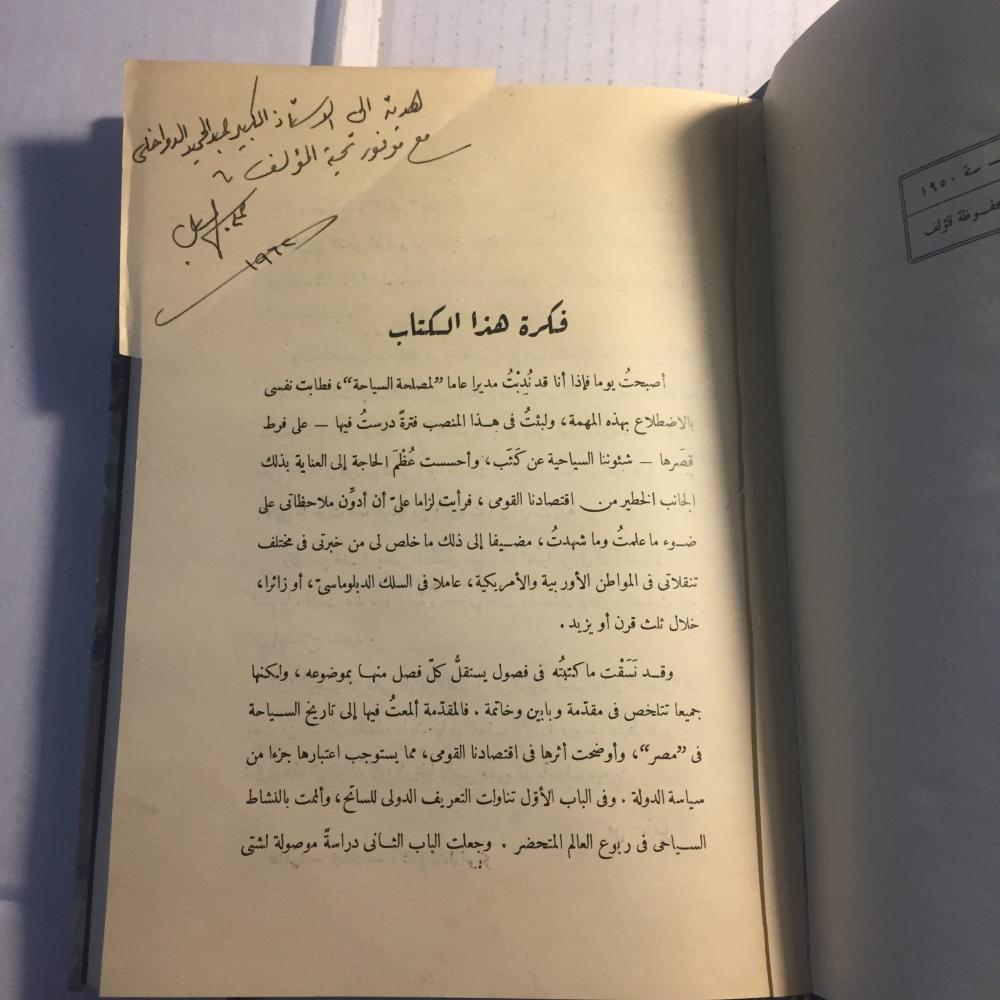 هدية الى الاستاذ الكبير عبد الحميد الدواخلى
مع موفور تحية المؤلف
١٩٦٢
فكرة هذا الكتاب
أصبحتُ يوما فإذا أنا قد نُدِبْتُ مديرا عاما ”لمصلحة السياحة“، فطابت نفسى
بالاضطلاع بهذه المهمة، ولبثتُ فى هــذا المنصب فترةً درستُ فيها — على فرط
قصَرها — شئوننا السياحية عن كَثَب، وأحسست عُظْمَ الحاجة إلى العناية بذلك
الجانب الخطير من اقتصادنا القومى، فرأيت لزاما علىّ أن أدوِّن ملاحظاتى على
ضــوء ما علمتُ وما شهدتُ، مضــيفا إلى ذلك ما خلص لى من خبرتى فى مختلف
تنقلاتى فى المواطن الأوربية والأمريكية، عاملا فى السلك الدبلوماسىّ، أو زائرا،
خلال ثلث قرن أو يزيد.
وقــد نَسَقْت ما كتبتُه فى فصول يستقلُّ كلّ فصل منهــا بموضوعه، ولكنها
جميعا تتلخص فى مقدّمة وبابين وخاتمة. فالمقدّمة ألمعتُ فيها إلى تاريخ الســياحة
فى ”مصر“، وأوضحت أثرها فى اقتصادنا القومى، مما يستوجب اعتبارها جزءا من
سياسة الدولة. وفى الباب الأوّل تناولت التعريف الدولى للسائح، وألممت بالنشاط
الســياحى فى ربوع العالم المتحضر. وجعلت الباب الثــانى دراسةً موصولة لشتى
سنة ١٩٥٠
للمؤلف